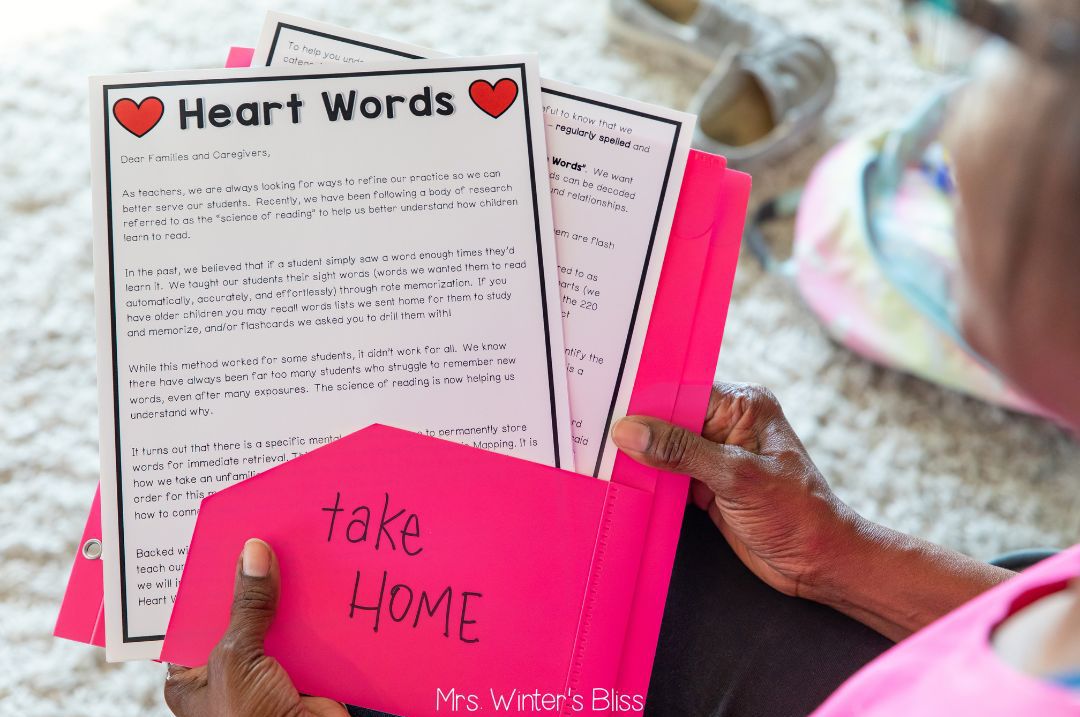 Heart Words
Dear Families and Caregivers,
As teachers, we are always looking for ways to refine our practice so we can
better serve our students. Recently, we have been following a body of research
referred to as the "science of reading" to help us better understand how children
learn to read.
In the past, we believed that if a student simply saw a word enough times they'd
learn it. We taught our students their sight words (words we wanted them to read
automatically, accurately, and effortlessly) through rote memorization. If you
have older children you may recall words lists we sent home for them to study
and memorize, and/or flashcards we asked you to drill them with!
While this method worked for some students, it didn't work for all. We know
there have always been far too many students who struggle to remember new
words, even after many exposures. The science of reading is now helping us
understand why.
It turns out that there is a specific mental to permanently store
words for immediate retrieval. Mapping. It is
how we take an
order for this
how to
Backed
teach our
we will
Heart
To help you
to know that we
– regularly spelled and
Words". We want
can be decoded
relationships.
are flash
to as
(we
the 220
the
is a
take
HOME
Mrs. Winter's Bliss